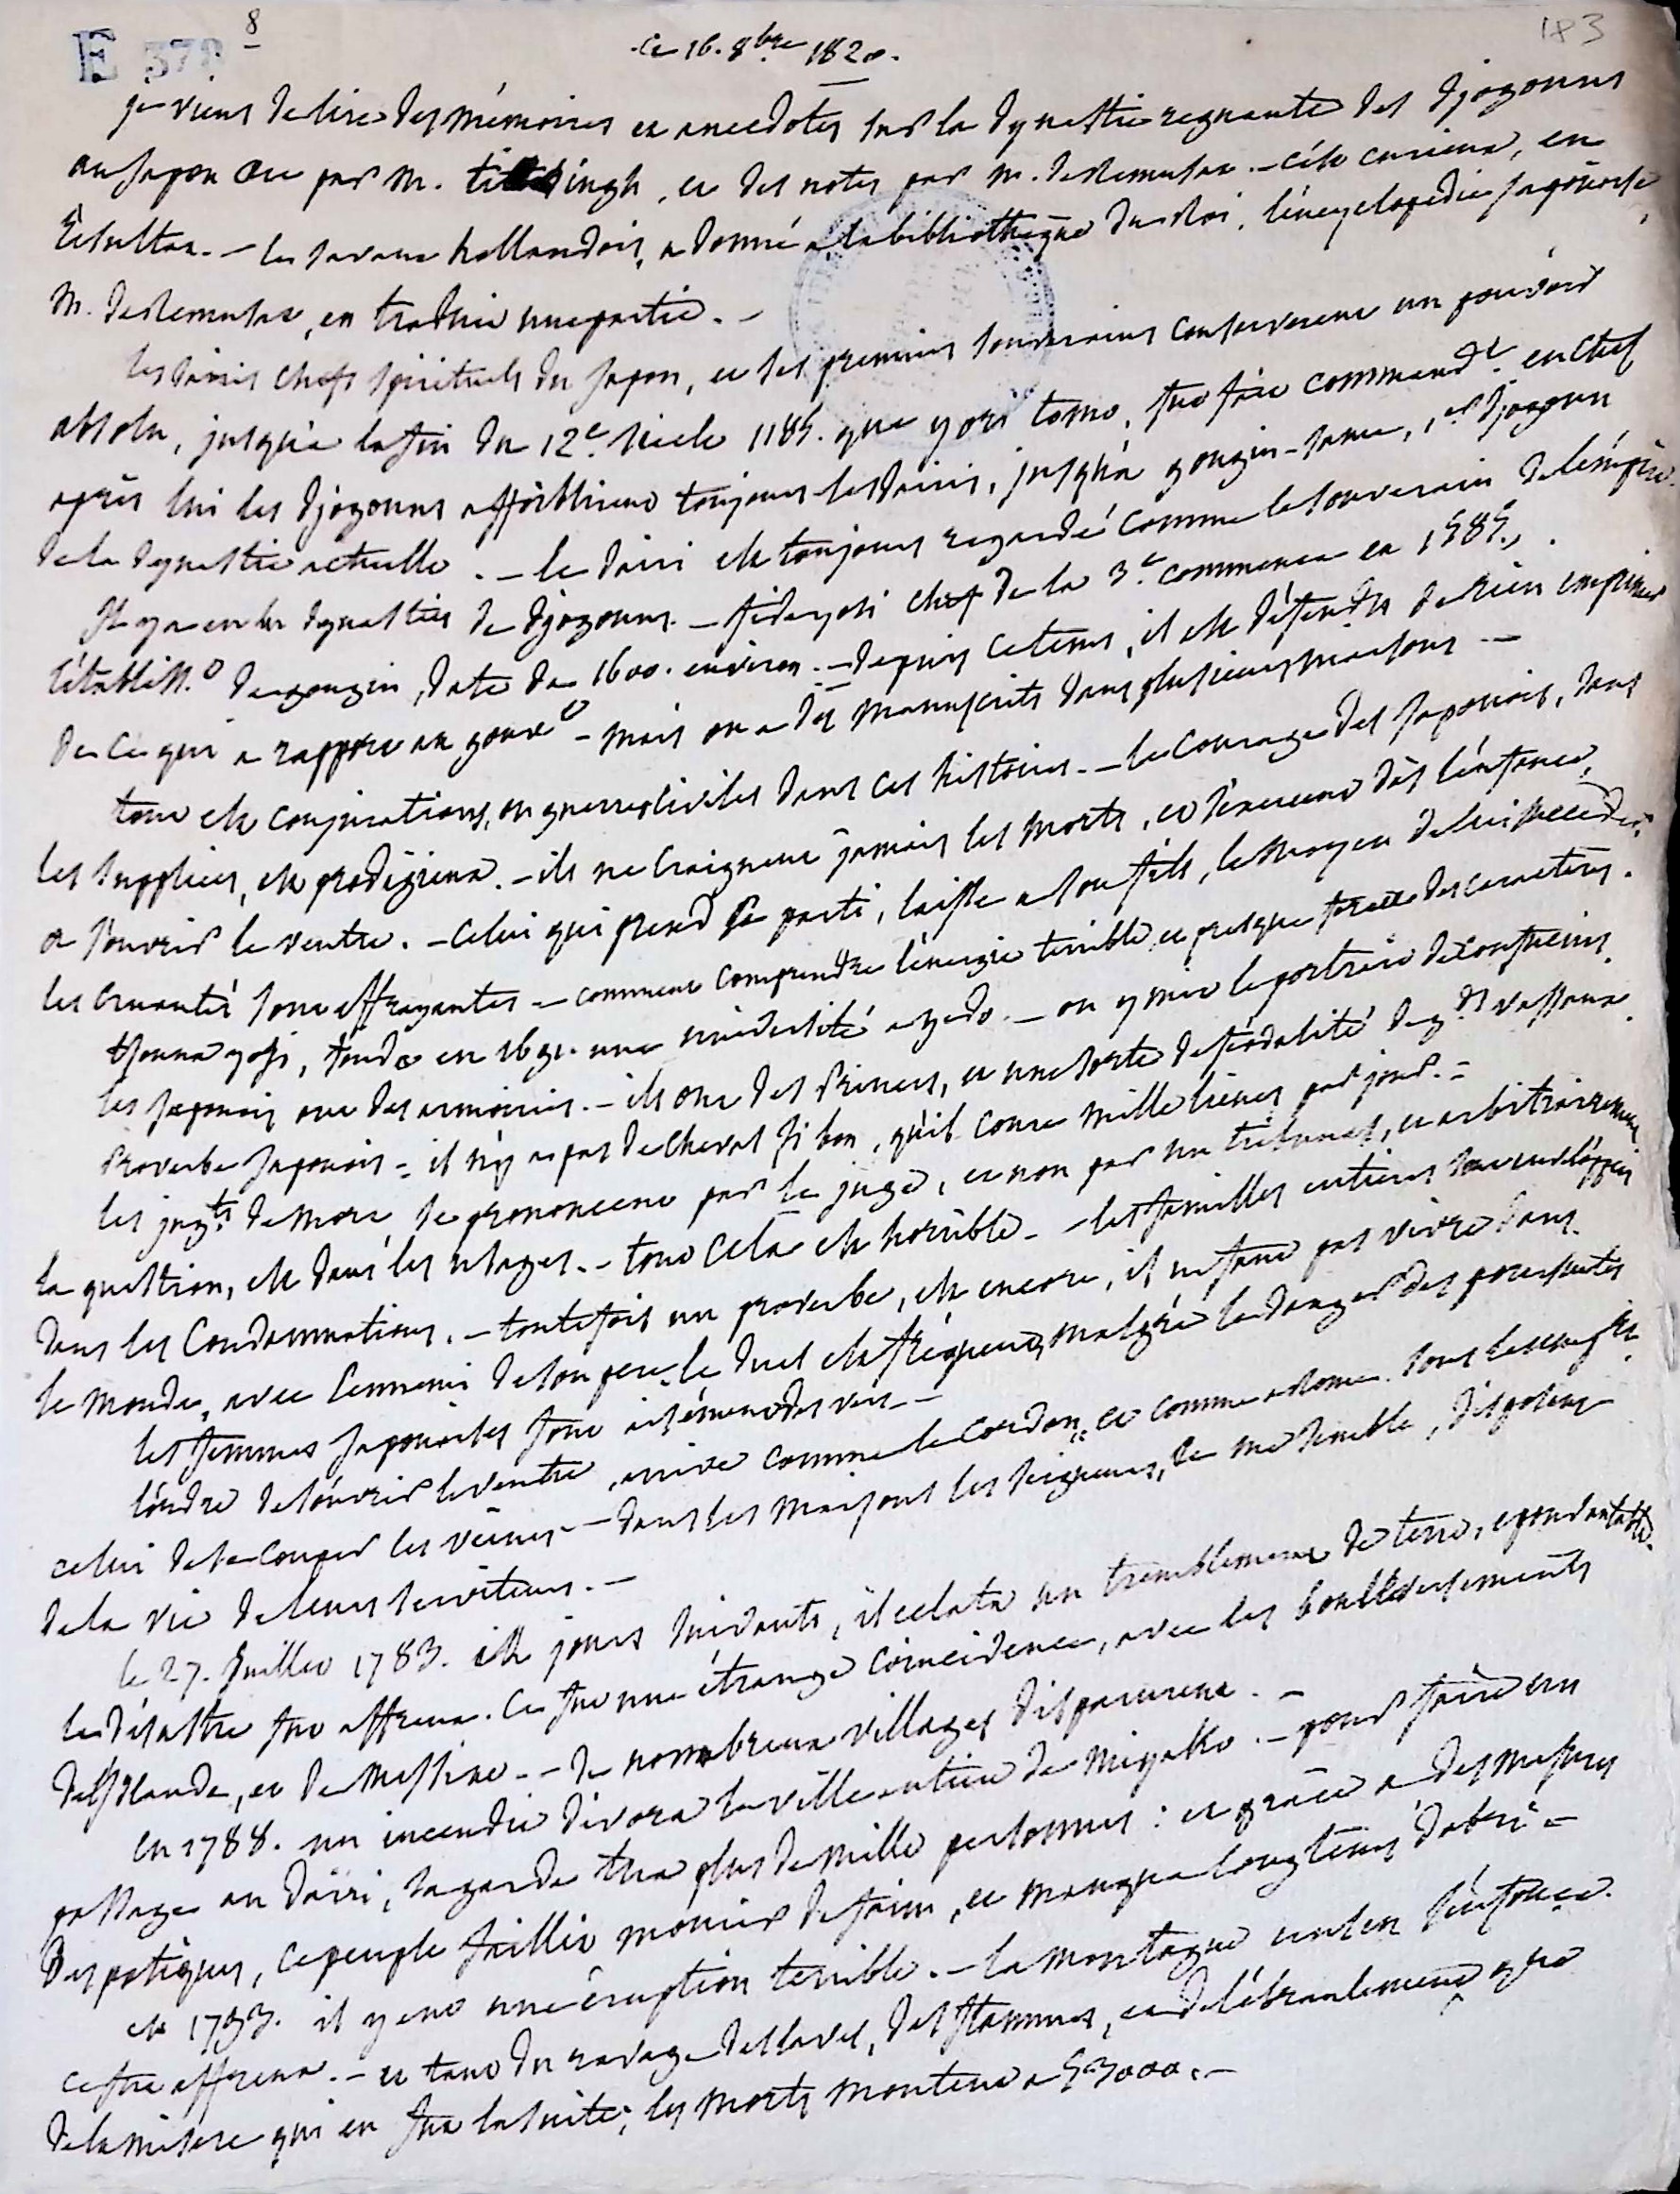 E 378 8
183
ce 16. 8bre 1820.
je viens de lire des mémoires et anecdotes sur la dynastie regnante des djogouns
au Japon &c par M. titsingh, et des notes par M. de Remusat. – c'est curieux, en
résultat. – le savant hollandois, a donné a la bibliothèque du Roi, l'encyclopédie japonoise,
M. de Remusat, en traduit une partie. –
les daïris chefs spirituels du Japon, et ses premiers souverains conserverent un pouvoir
absolu, jusqu'a la fin du 12e siecle 1185. que yori tomo, fut fait commandt en chef
après lui les djogouns affoiblirent toujours les daïris, jusqu'à gongin-sama, 1er djogoun
de la dynastie actuelle. – le daïri est toujours regardé comme le souverain de l'empire.
Il y a eu dynasties de djogouns. – fideyosi chef de la 3e commença en 1585.
l'établisst de gongin, date de 1600. environ. – depuis ce tems, il est défendu de rien imprimer
de ce qui a rapport au gouvt – mais on a des manuscrits dans plusieurs maisons –
tout est conjurations, ou guerres civiles dans ces histoires. – le courage des Japonois, dans
les supplices, est prodigieux. – ils ne craignent jamais les morts, et s'exercent dès l'enfance,
a s'ouvrir le ventre. – celui qui prend ce parti, laisse a son fils, le moyen de lui succéder.
les cruautés sont effrayantes – comment comprendre l'énergie terrible et presque feroce des caracteres.
tsouna yosi, fonda en 1691. une université a yedo. – on y mit le portrait de confucius.
les Japonois ont des armoiries. – ils ont des Princes, et une sorte de féodalité de gds vassaux.
Proverbe Japonois = il n'y a pas de cheval si bon, qu'il coure mille lieues par jour. =
les jugts de mort se prononcent par le juge, et non par un tribunal, et arbitrairement
la question, est dans les usages. – tout cela est horrible – les familles entieres sont enveloppées
dans les condamnations. – toutefois un proverbe, est encore, il ne faut pas vivre dans
le monde, avec l'ennemi de son pere. le duel est fréquent, malgré le danger des poursuites
les femmes Japonoises font aisément des vers –
l'ordre de s'ouvrir le ventre, arrive comme le cordon, et comme a Rome sous
celui de se couper les veines – dans les maisons les seigneurs, ce me semble, disposent
de la vie de leurs serviteurs. –
le 27. Juillet 1783. et jours suivants, il eclata un tremblement de terre, epouvantable.
le désastre fut affreux. Ce fut une étrange coincidence, avec les boulleversements
d'Islande, et de Messine – de nombreux villages disparurent. –
en 1788. un incendie dévora la ville entiere de Miyako. – pour faire un
passage au daïri, la garde tua plus de mille personnes : et grace a des mesures
despotiques, ce peuple faillit mourir de faim, et manqua longtems d'abri –
en 1793. il y eut une éruption terrible. – la montagne unsen s'enfonça.
ce fut affreux. – et tant du ravage des laves, des flammes, et de l'ébranlement que
de la misere qui en fut la suite; les morts montent a 53000. –